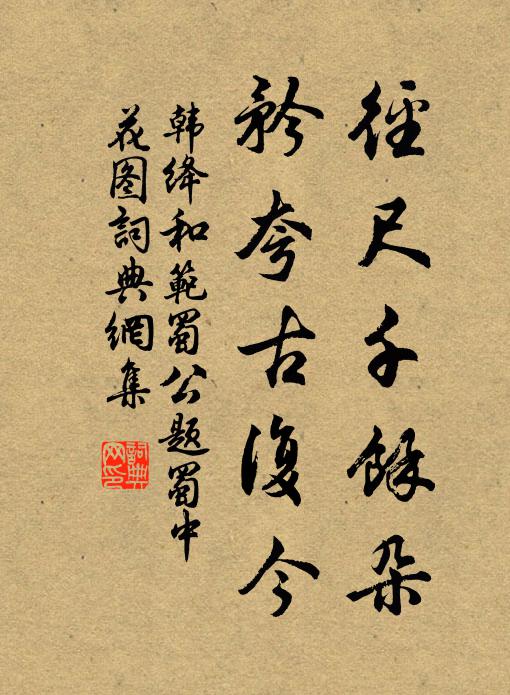 徑尺千餘朵
矜夸古復今
韩绛和範蜀公題蜀中
花图詞典網集
詞典网印